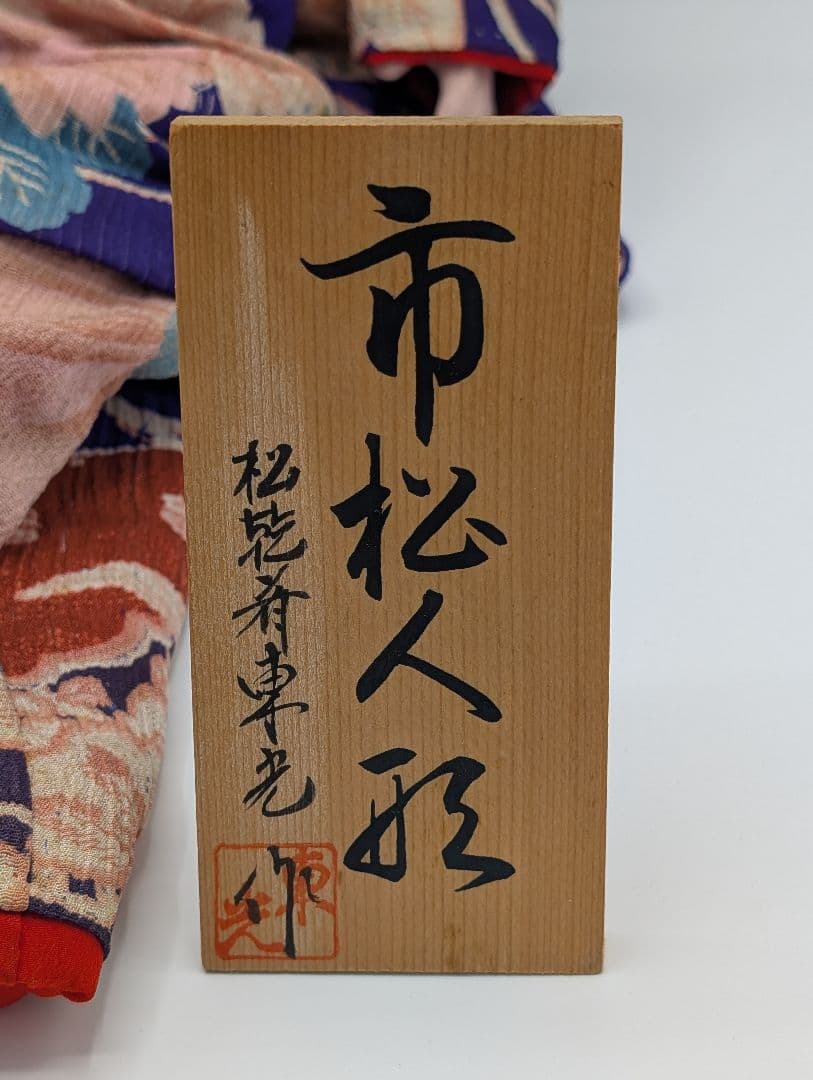 市松人形
松乾斎東光作
東光